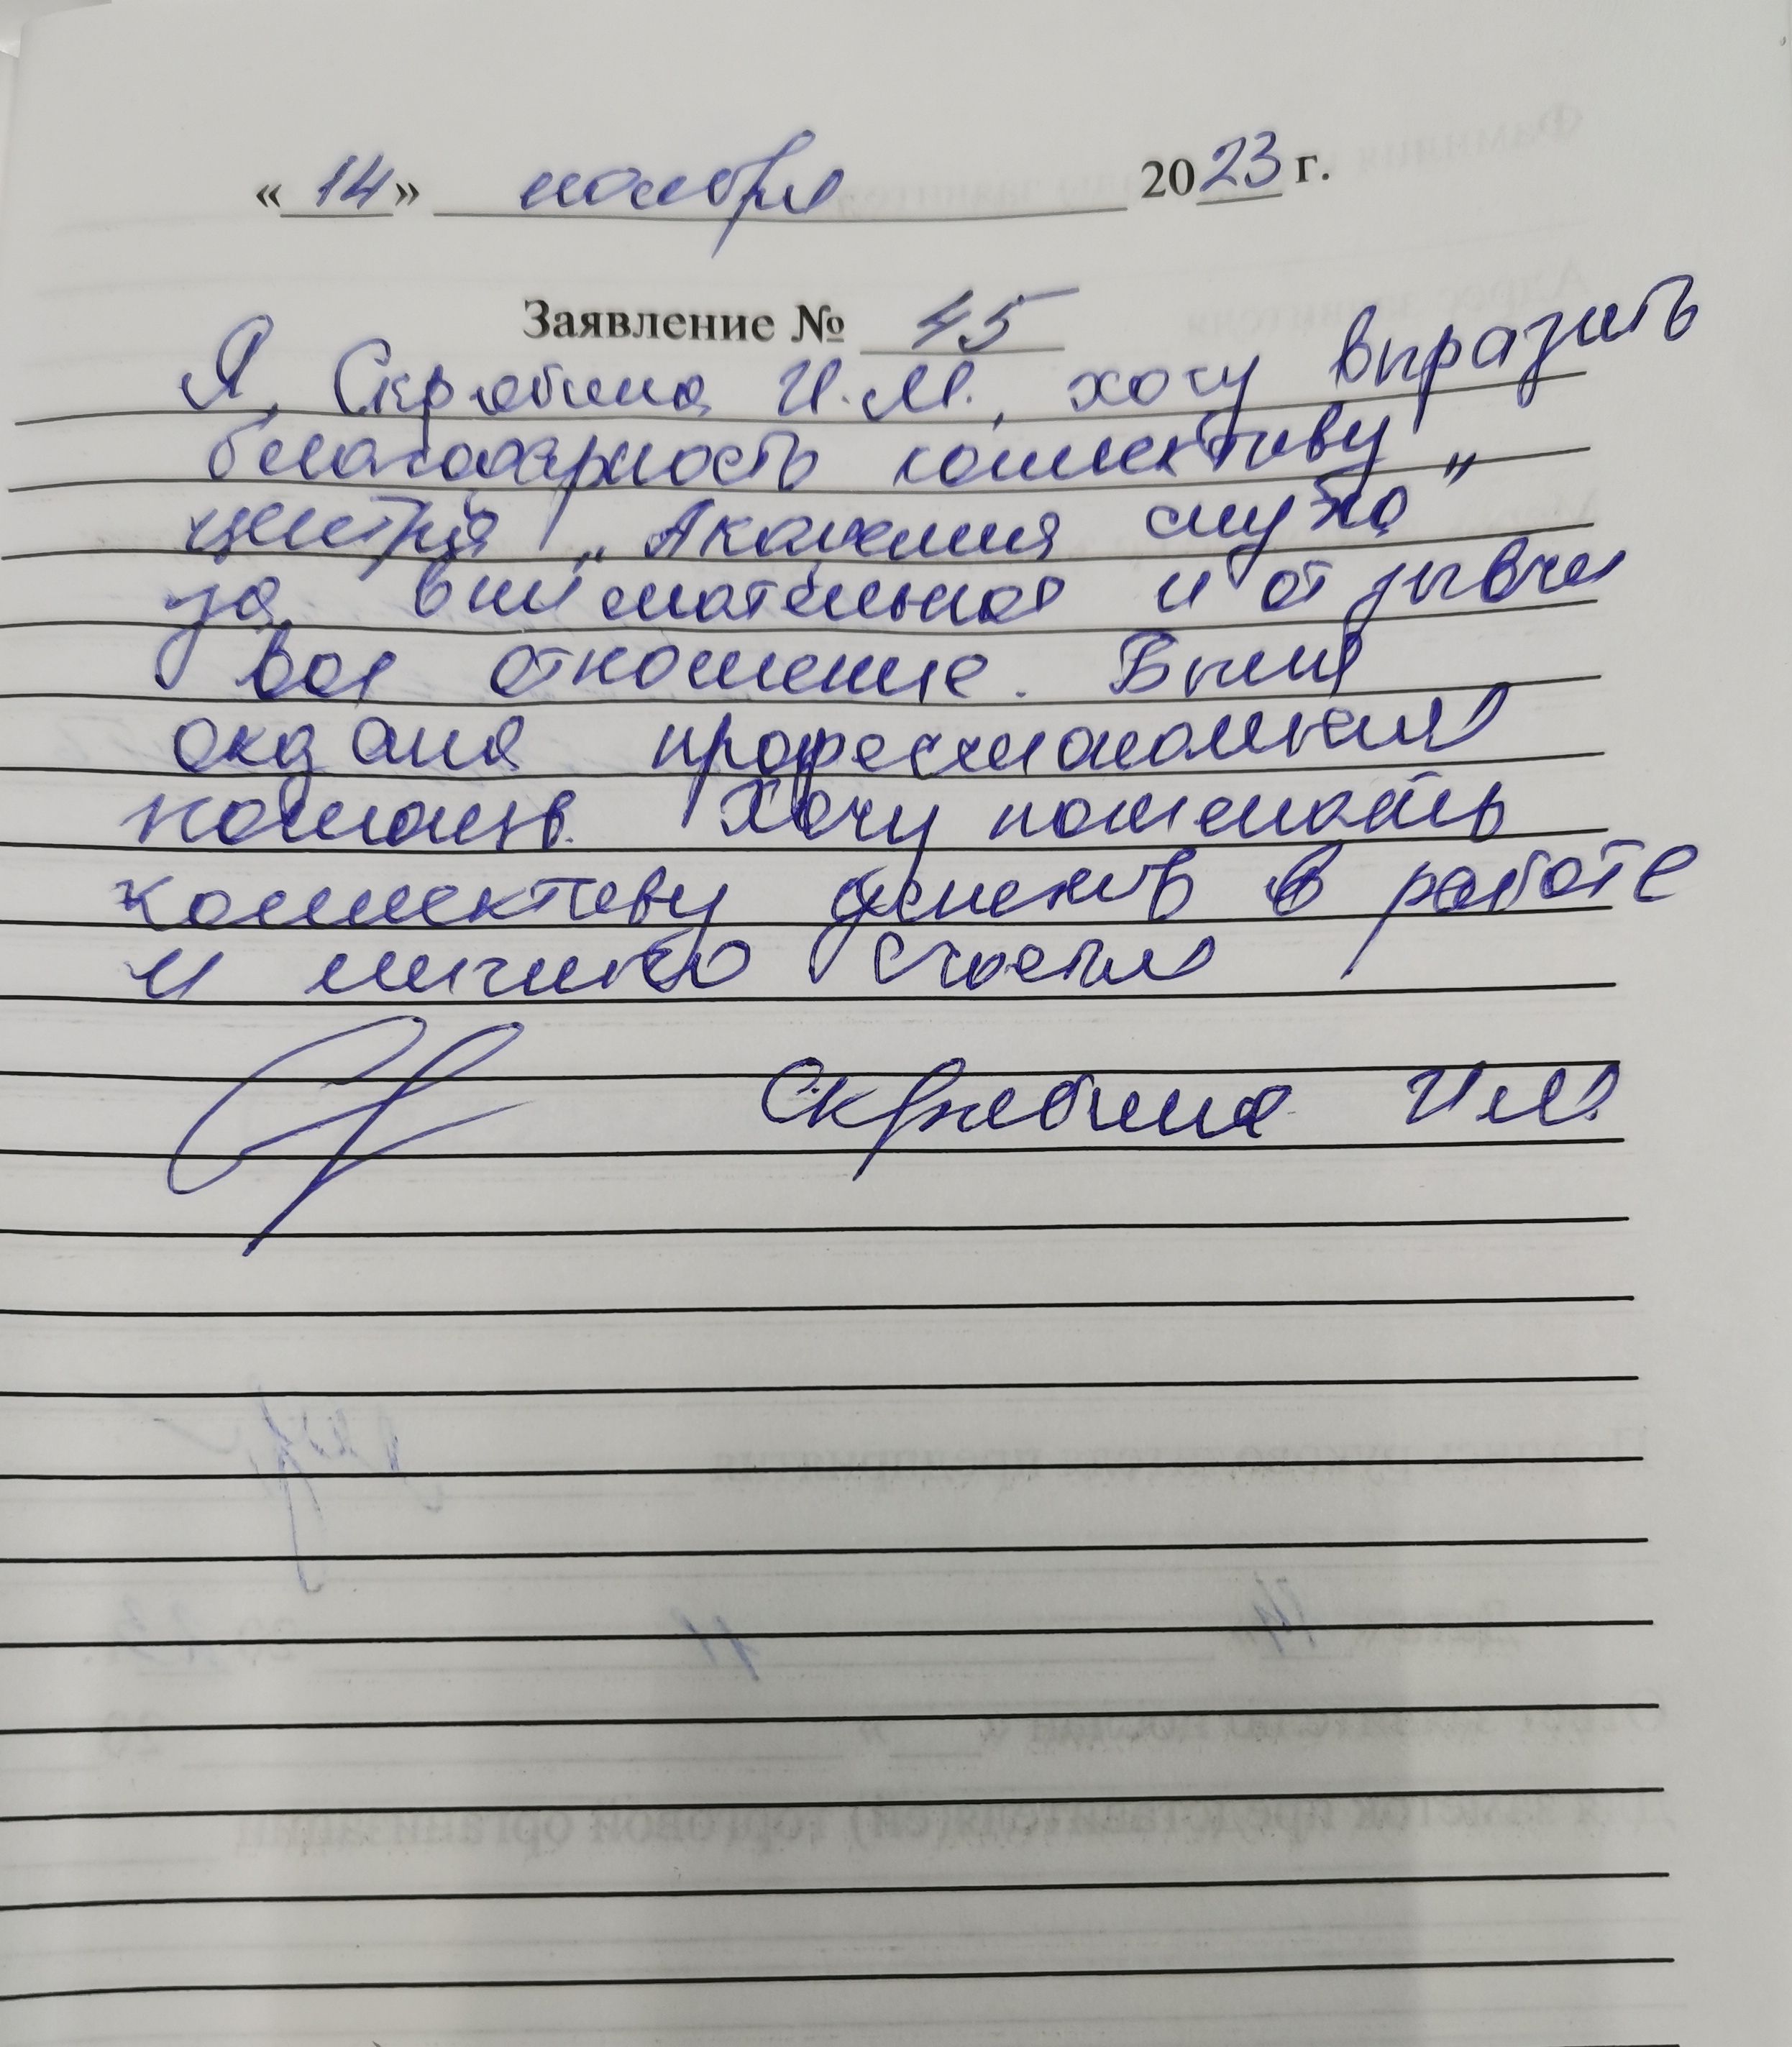 « 14 » ноября 2023 г.
Заявление № 45
Я, Скрябина И.М., хочу выразить
благодарность коллективу
центра „Академия слуха”
за внимательное и отзывчи
вое отношение. Была
оказана профессиональная
помощь. Хочу пожелать
коллективу успехов в работе
и личного счастья
Скрябина И.М.